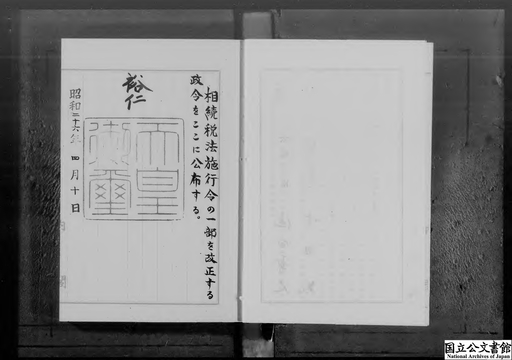 相続税法施行令の一部を改正する
政令をここに公布する。
裕仁
天皇
御璽
昭和二十六年四月十日
国立公文書館
National Archives of Japan